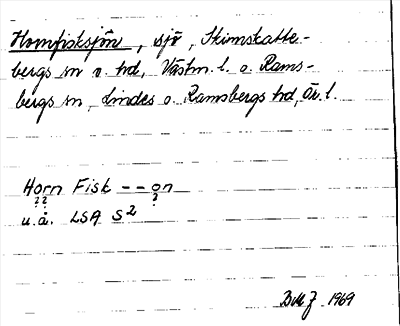 Hornfisksjön, sjö, Skinnskatte-
bergs sn o. hd, Västm. l. o. Rams-
bergs sn, Lindes o. Ramsbergs hd, Ör. l.
Horn Fisk -- on
?? ?
u.å. LSA S²
1969